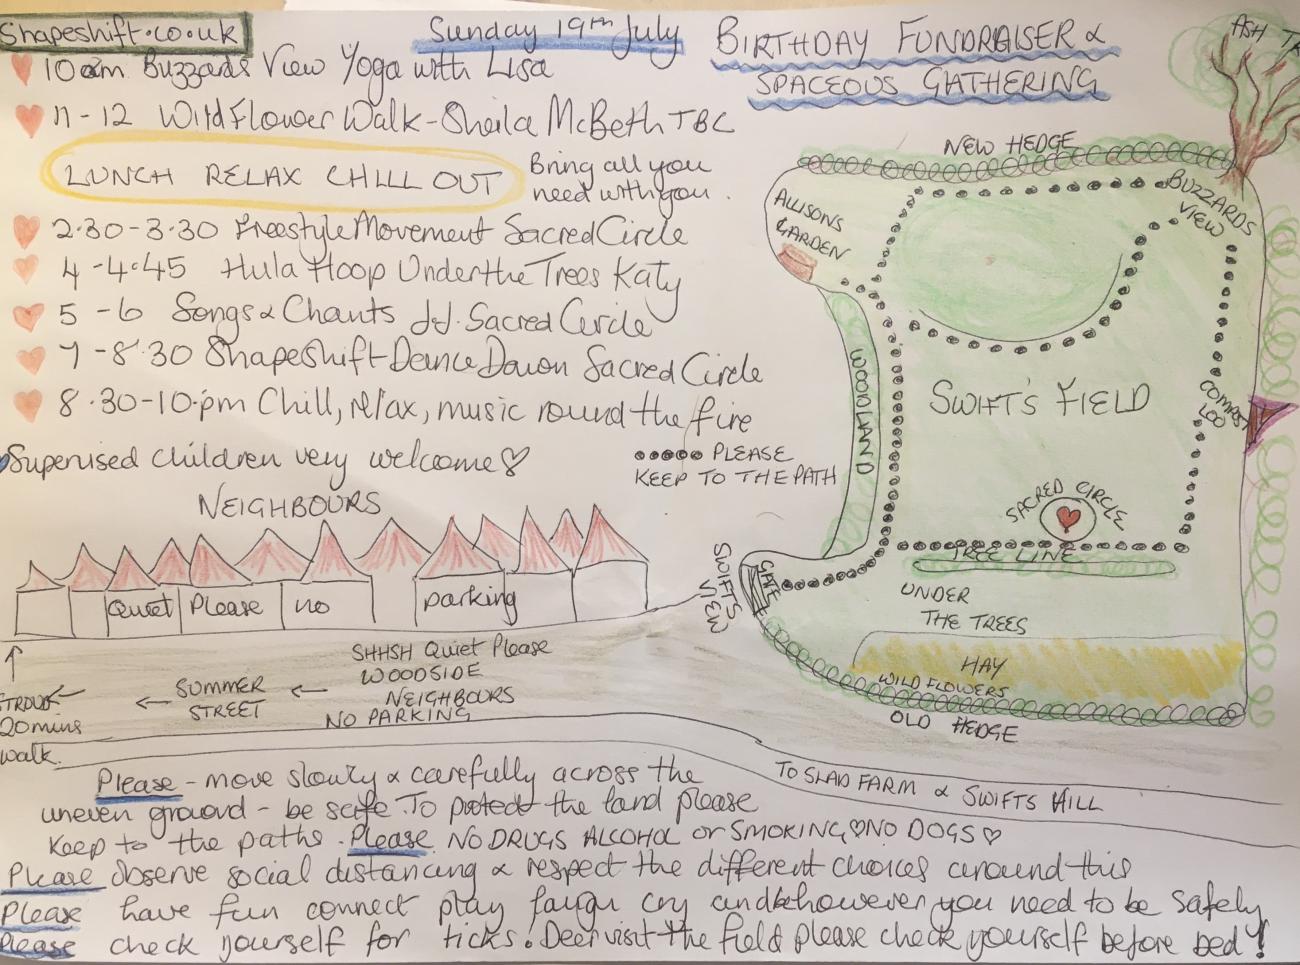 Shapeshift.co.uk
Sunday 19th July
BIRTHDAY FUNDRAISER &
SPACEOUS GATHERING
10am Buzzards View Yoga with Lisa
11-12 WildFlower Walk - Sheila McBeth TBC
LUNCH RELAX CHILL OUT
Bring all you
need with you.
2.30-3.30 Freestyle Movement Sacred Circle
4-4.45 Hula Hoop Under the Trees Katy
5-6 Songs & Chants JJ. Sacred Circle
7-8.30 Shapeshift Dance Dawn Sacred Circle
8.30-10.pm Chill, relax, music round the fire
Supervised children very welcome
PLEASE
KEEP TO THE PATH
NEIGHBOURS
Quiet Please no parking
SHHSH Quiet Please
WOODSIDE
NEIGHBOURS
NO PARKING
SUMMER
STREET
STROUD
20 mins
walk.
ASH TR
NEW HEDGE
BUZZARDS
VIEW
ALLISONS
GARDEN
WOODLAND
SWIFT'S FIELD
COMPOST
LOO
SACRED CIRCLE
TREE LINE
GATE
SWIFTS
VIEW
UNDER
THE TREES
HAY
WILD FLOWERS
OLD HEDGE
TO SLAD FARM & SWIFTS HILL
Please - move slowly & carefully across the
uneven ground - be safe. To protect the land please
keep to the paths. Please NO DRUGS ALCOHOL or SMOKING NO DOGS
Please observe social distancing & respect the different choices around this
Please have fun connect play laugh cry and be however you need to be safely
Please check yourself for ticks. Deer visit the field please check yourself before bed!